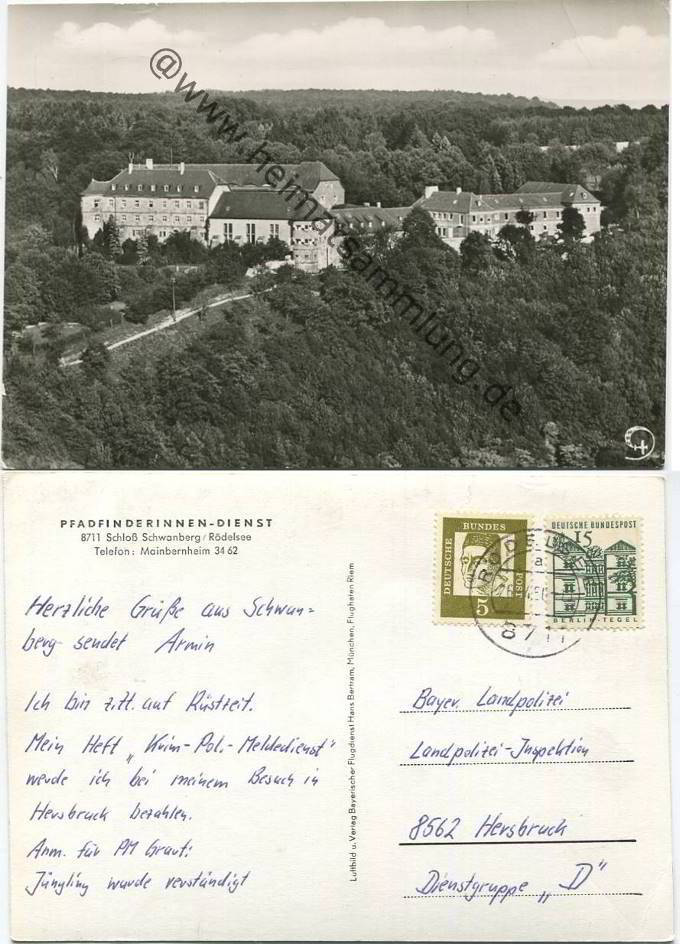 @www.heimatsammlung.de
PFADFINDERINNEN-DIENST
8711 Schloß Schwanberg/Rödelsee
Telefon: Mainbernheim 34 62
Herzliche Grüße aus Schwan=
berg sendet Armin
Ich bin z.Zt. auf Rüstzeit.
Mein Heft „Krim-Pol.-Meldedienst"
werde ich bei meinem Besuch in
Hersbruck bezahlen.
Anm. für PM Graut:
Jüngling wurde verständigt
Luftbild u. Verlag Bayerischer Flugdienst Hans Bertram, München, Flughafen Riem
DEUTSCHE BUNDES POST
5
DEUTSCHE BUNDESPOST
15
BERLIN-TEGEL
RÖDELSEE
a
8711
Bayer. Landpolizei
Landpolizei-Inspektion
8562 Hersbruck
Dienstgruppe „D"